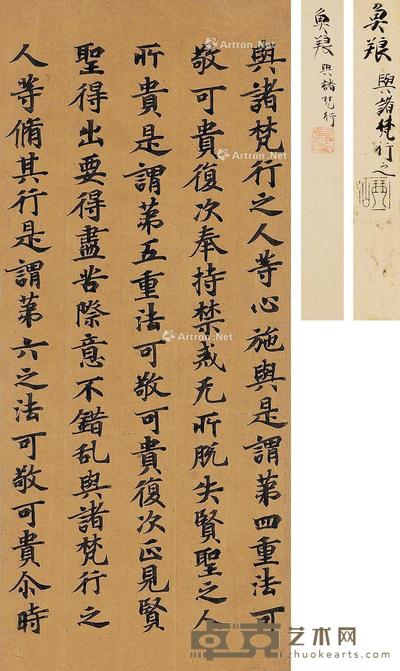 與諸梵行之人等心施與是謂第四重法可
敬可貴復次奉持禁戒无所脱失賢聖之人
所貴是謂第五重法可敬可貴復次正見賢
聖得出要得盡苦際意不錯乱與諸梵行之
人等脩其行是謂第六之法可敬可貴尒時
與諸梵行
與諸梵行之
Artron.Net
Artron.Net
Artron.Net
Artron.Net
卓克艺术网
zhuokearts.com